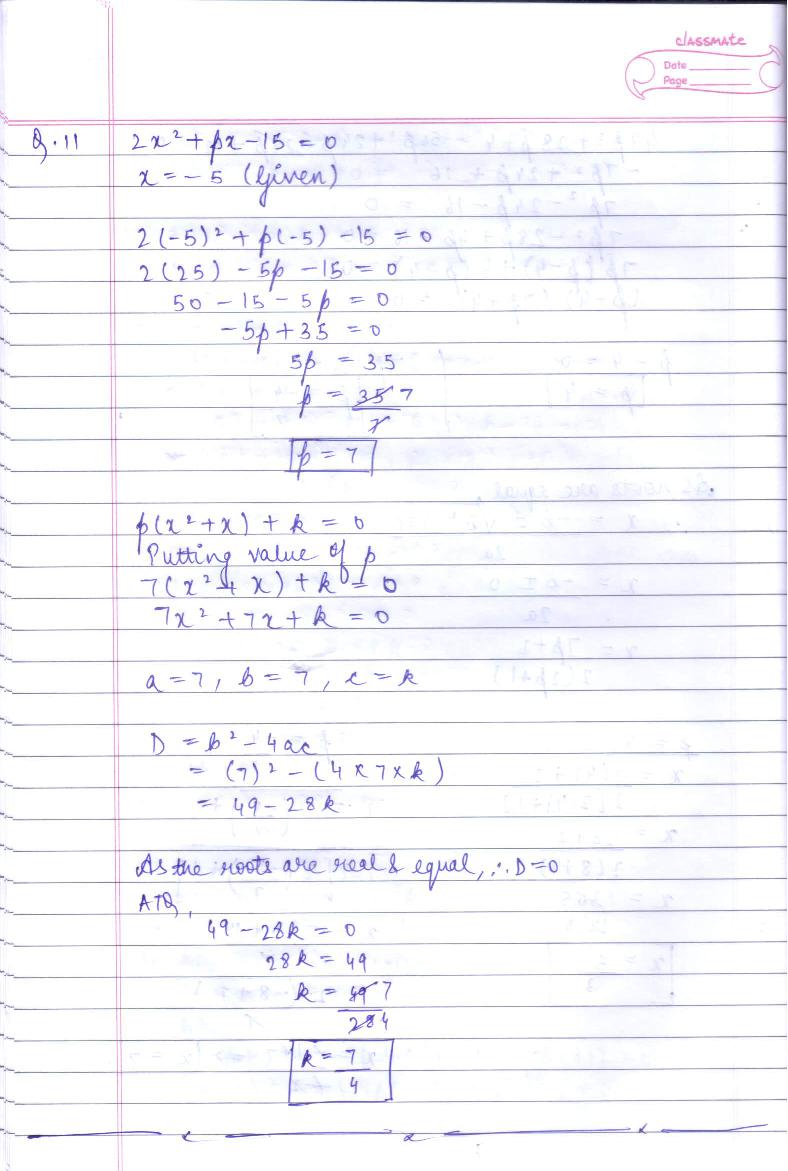 classmate
Date
Page
Q.11 2x² + px - 15 = 0
x = -5 (Given)
2(-5)² + p(-5) - 15 = 0
2(25) - 5p - 15 = 0
50 - 15 - 5p = 0
-5p + 35 = 0
5p = 35
p = 35 7
p = 7
p(x² + x) + k = 0
Putting value of p
7(x² + x) + k = 0
7x² + 7x + k = 0
a = 7, b = 7, c = k
D = b² - 4ac
= (7)² - (4 x 7 x k)
= 49 - 28k
As the roots are real & equal, ∴ D = 0
ATQ,
49 - 28k = 0
28k = 49
k = 49 7
28 4
k = 7
4